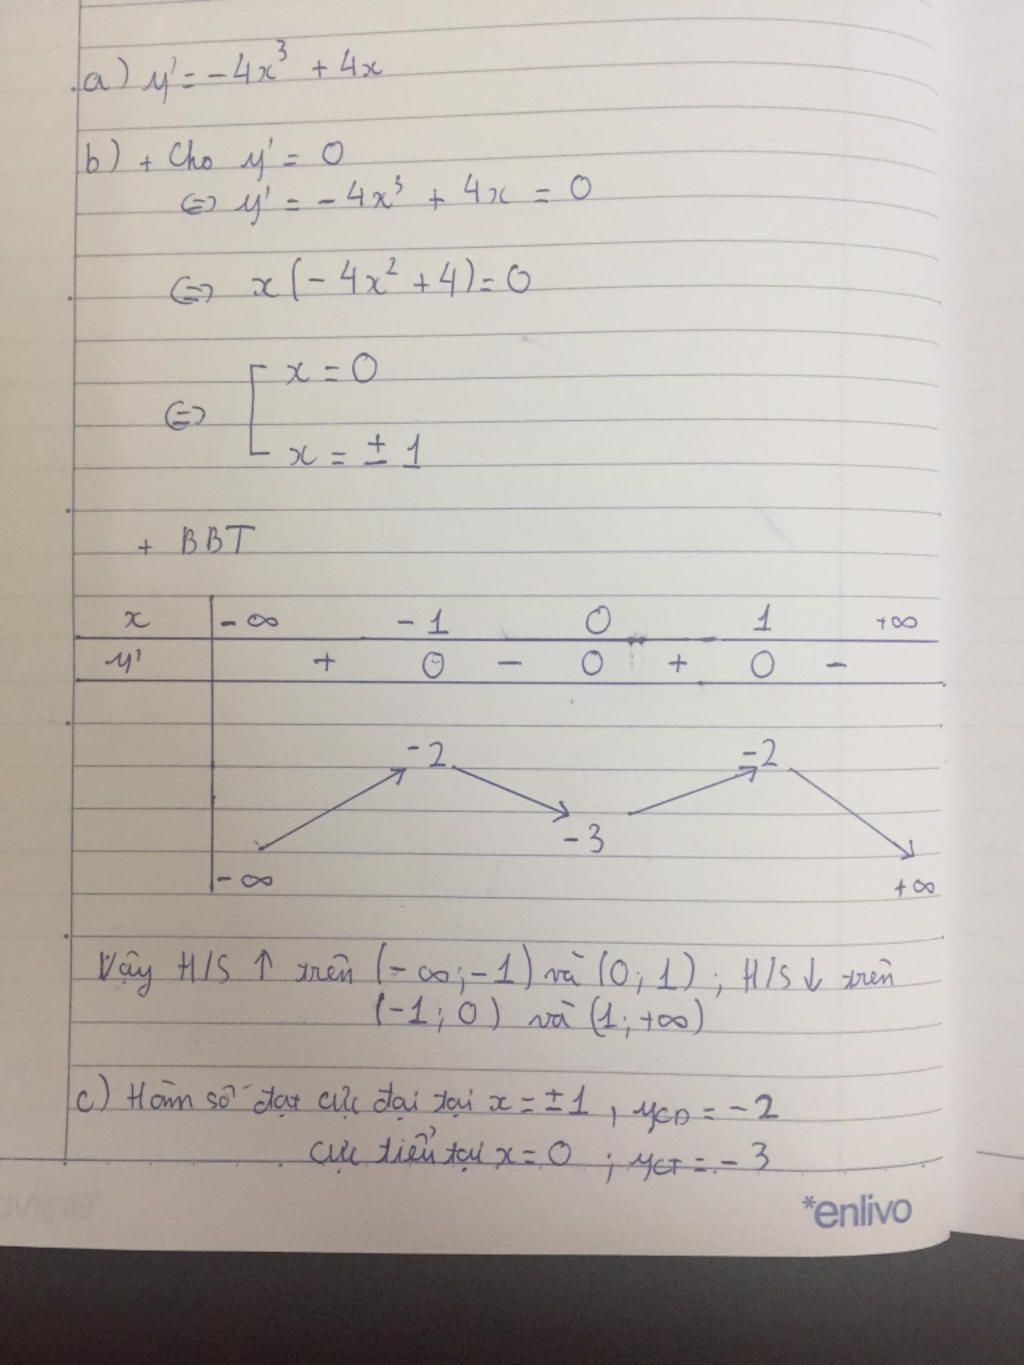 a) y' = -4x³ + 4x
b) + Cho y' = 0
⇔ y' = -4x³ + 4x = 0
⇔ x(-4x² + 4) = 0
⇔ [ x = 0
x = ± 1
+ BBT
x -∞ -1 0 1 +∞
y' + 0 - 0 + 0 -
-2 -2
-3
-∞ +∞
Vậy H/S ↑ trên (-∞; -1) và (0; 1) ; H/S ↓ trên
(-1; 0) và (1; +∞)
c) Hàm số đạt cực đại tại x = ±1 , yCĐ = -2
cực tiểu tại x = 0 ; yCT = -3
*enlivo